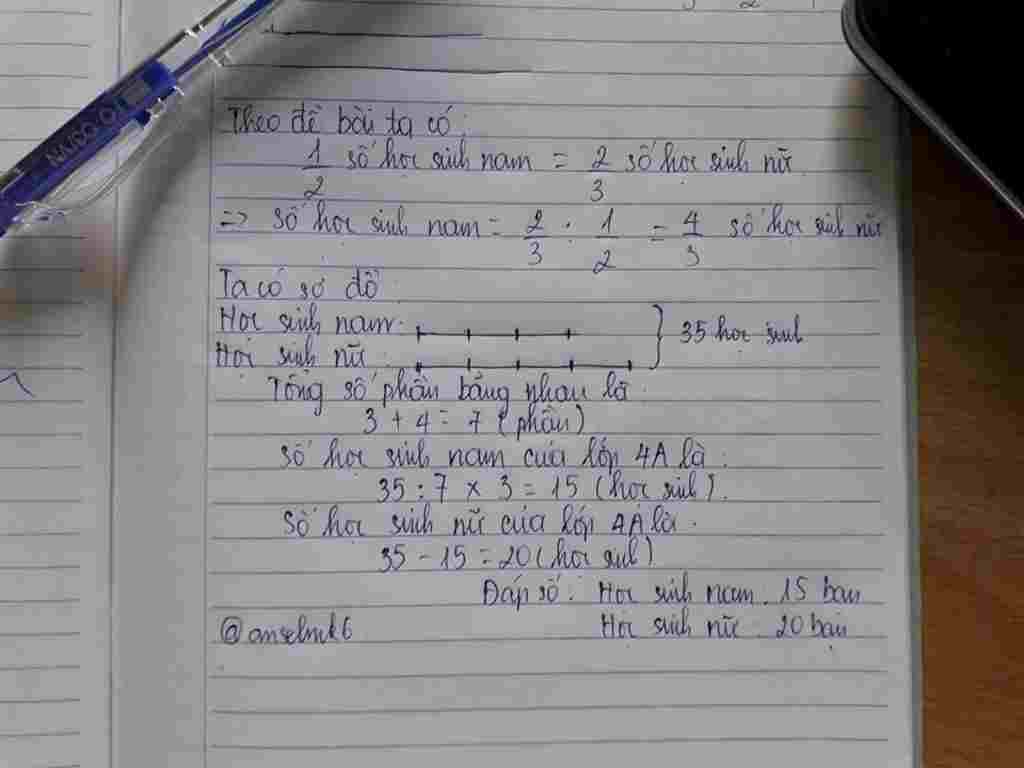 Theo đề bài ta có:
1/2 số học sinh nam = 2/3 số học sinh nữ
=> số học sinh nam = 2/3 : 1/2 = 4/3 số học sinh nữ
Ta có sơ đồ
Học sinh nam:
35 học sinh
Học sinh nữ:
Tổng số phần bằng nhau là:
3 + 4 = 7 (phần)
Số học sinh nam của lớp 4A là:
35 : 7 x 3 = 15 (học sinh).
Số học sinh nữ của lớp 4A là:
35 - 15 = 20 (học sinh)
Đáp số: Học sinh nam: 15 bạn
Học sinh nữ: 20 bạn